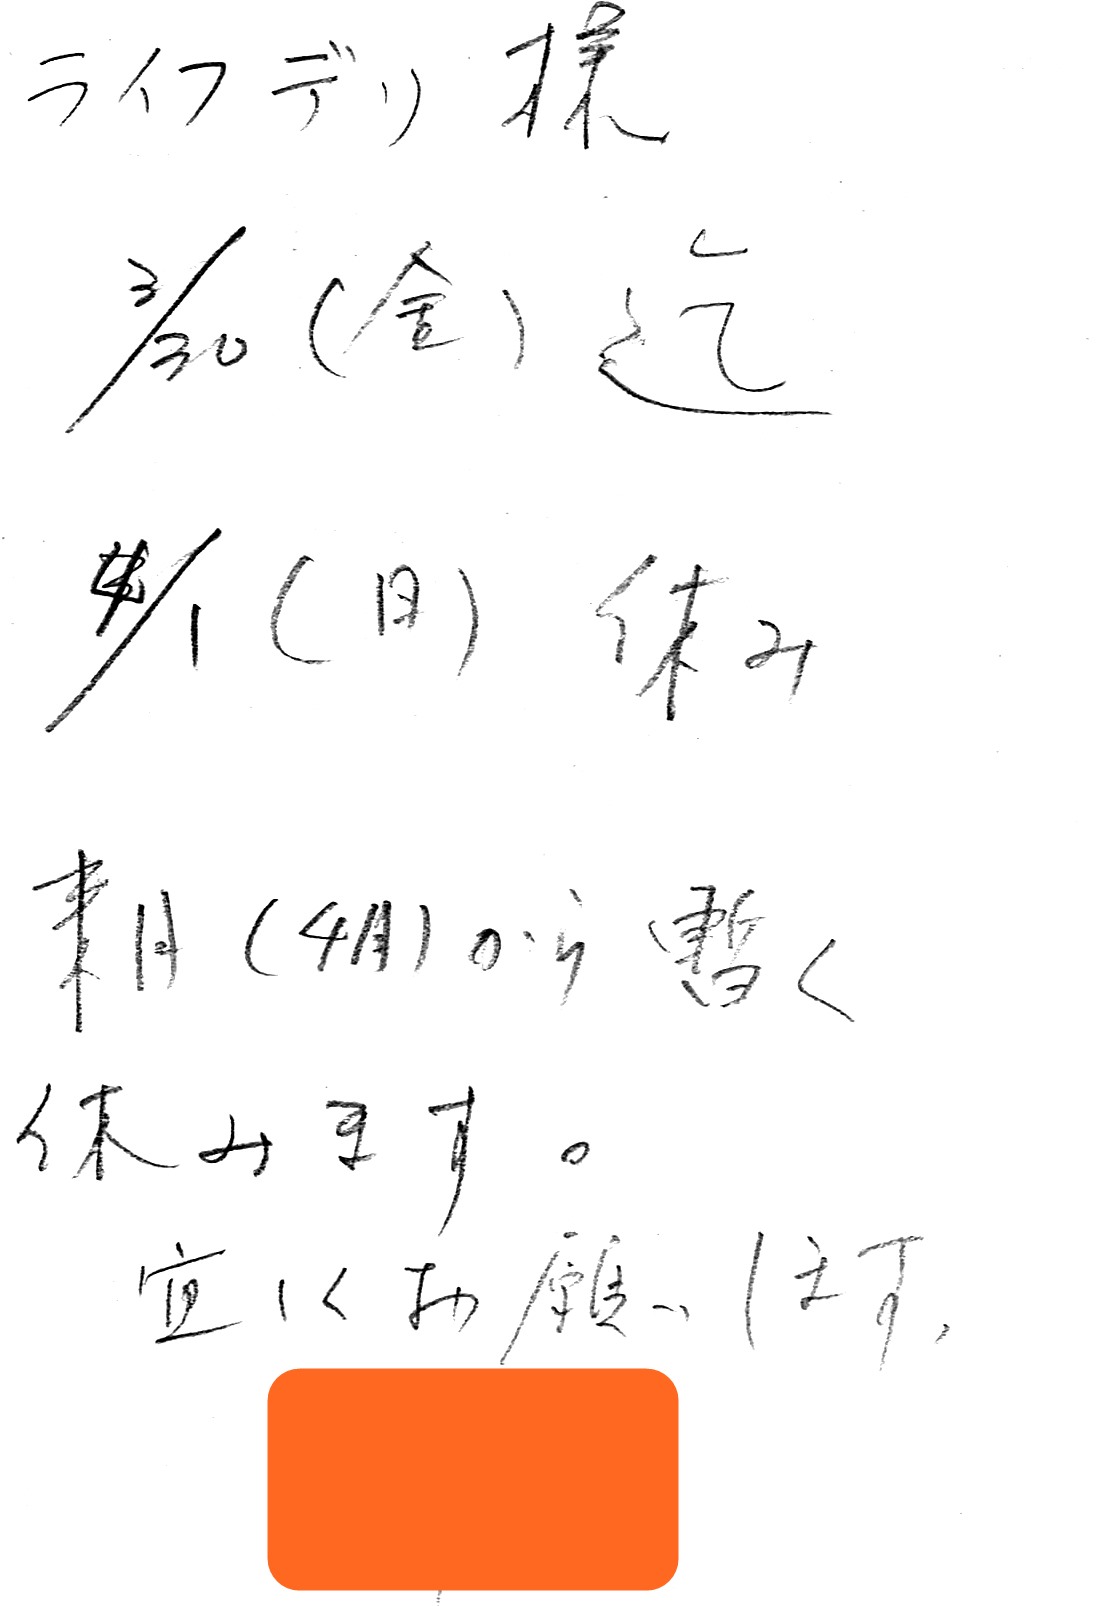 ライフデリ様
3/30(金)迄
4/1(日) 休み
来月(4月)から暫く
休みます。
宜しくお願いします、